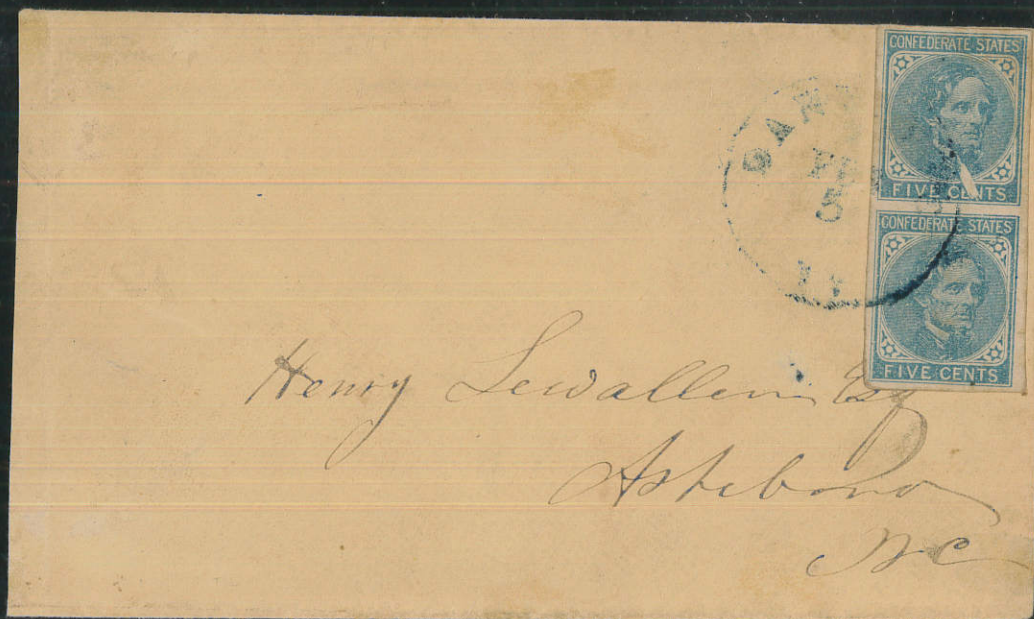 CONFEDERATE STATES
FIVE CENTS
CONFEDERATE STATES
FIVE CENTS
DAN
5
Henry Lewallen Esq
Asheboro
NC